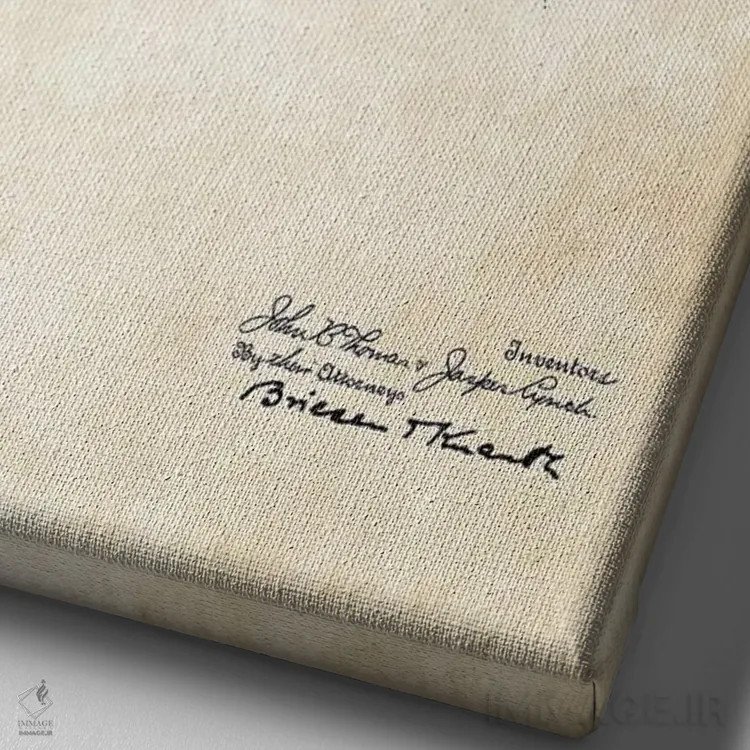 Inventors
John B Thomas & Jasper Lynch
By their Attorneys
Briesen & Knauth
IMMAGE
IMMAGE.IR
IMMAGE.IR